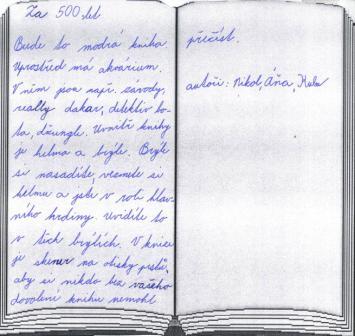 Za 500 let
Bude to modrá kniha.
Uprostřed má akvárium.
V ním jsou např. závody,
really dakar, detektiv ko-
ta, džungle. Uvnitř knihy
je helma a brýle. Brýle
si nasadíte, vezmete si
helmu a jste v roli hlav-
ního hrdiny. Uvidíte to
v těch brýlích. V knize
je skener na otisky prstů,
aby si nikdo bez vašeho
dovolení knihu nemohl
přečíst.
autoři: Nikol, Áňa,